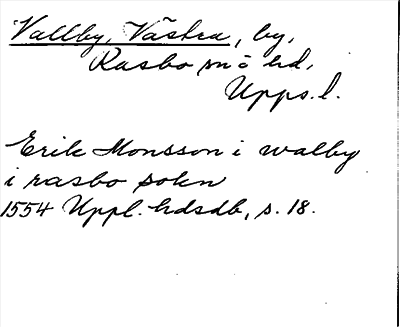 Vallby, Västra, by,
Rasbo sn o hd,
Upps. l.
Erik Monsson i walby
i rasbo sokn
1554 Uppl. hdsdb, s. 18.